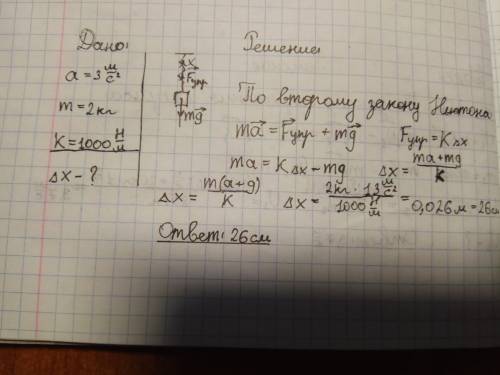 Дано:
a = 3 м/с²
m = 2 кг
K = 1000 Н/м
Δx - ?
Решение
x
Fупр
mg
По второму закону Ньютона
ma = Fупр + mg
Fупр = KΔx
ma = KΔx - mg
Δx = (ma+mg)/K
Δx = m(a+g)/K
Δx = (2кг · 13 м/с²)/(1000 Н/м) = 0,026м = 26см
Ответ: 26см